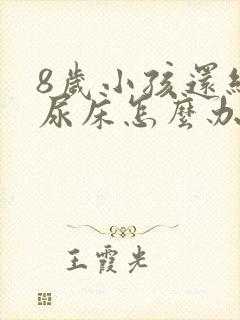 8歲小孩還經
尿床怎麼办
王霞光